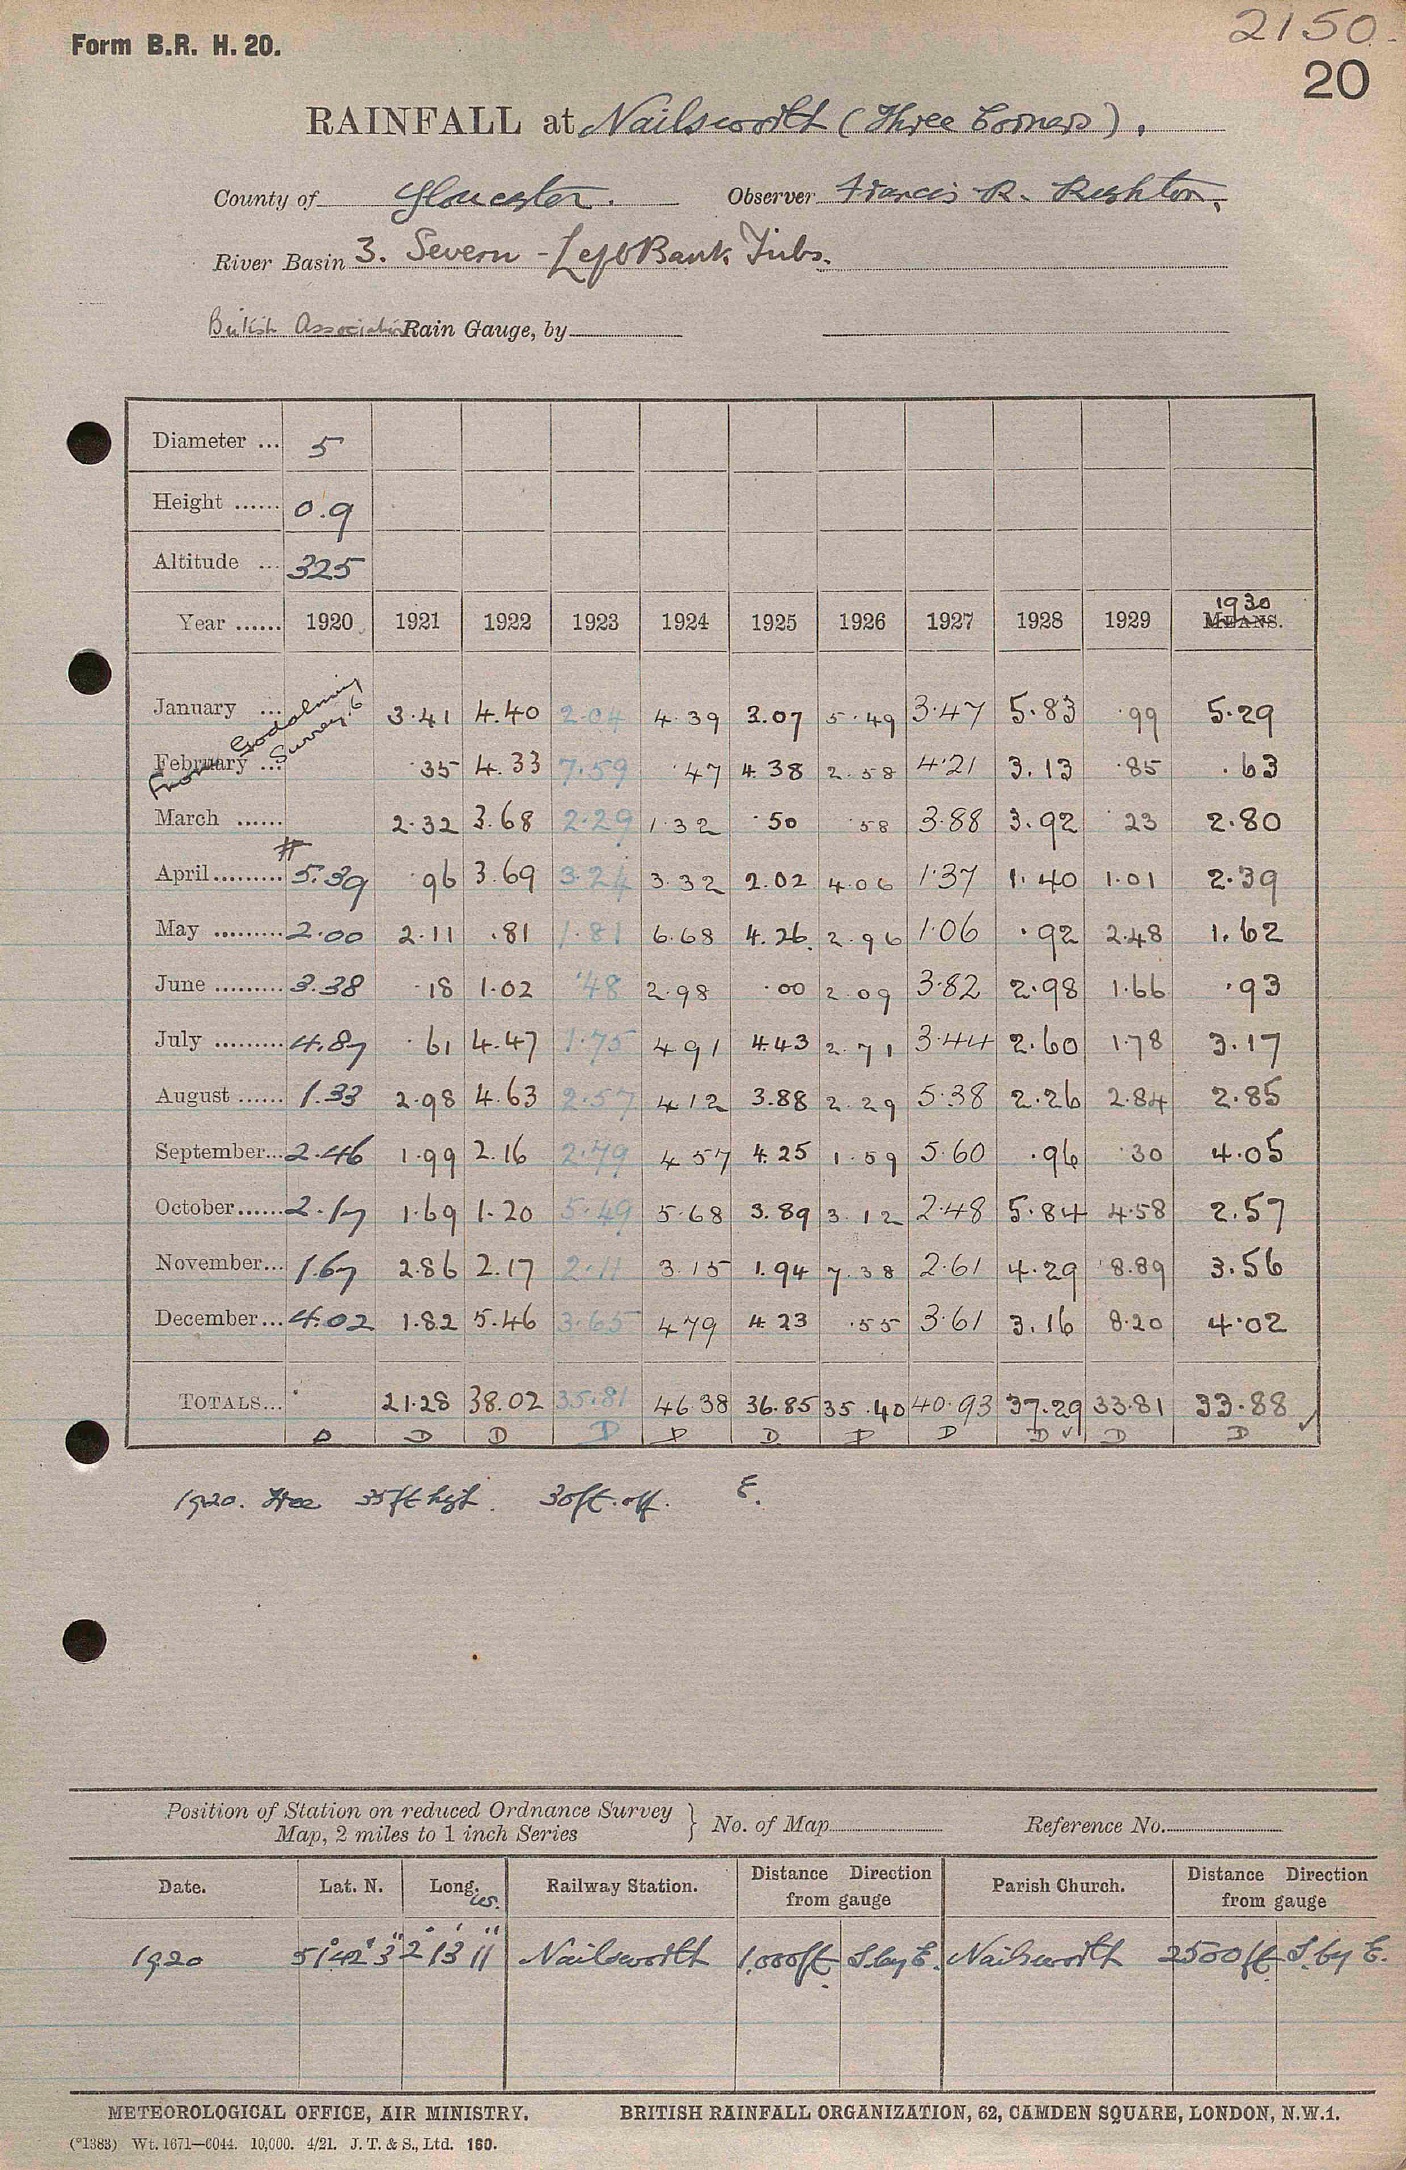 2150.
Form B.R. H. 20.
20
RAINFALL at Nailsworth (Three Corners).
County of Gloucester. Observer Francis R. Rushton,
River Basin 3. Severn - Left Bank Tribs.
British Association Rain Gauge, by
Diameter ... 5
Height ...... 0.9
Altitude ... 325
Year ...... 1920 1921 1922 1923 1924 1925 1926 1927 1928 1929 MEANS. 1930
From Godalming
Surrey.6
January ... 3.41 4.40 2.04 4.39 3.07 5.49 3.47 5.83 .99 5.29
February ... .35 4.33 7.59 .47 4.38 2.58 4.21 3.13 .85 .63
March ...... 2.32 3.68 2.29 1.32 .50 .58 3.88 3.92 .23 2.80
#
April......... 5.39 .96 3.69 3.24 3.32 2.02 4.06 1.37 1.40 1.01 2.39
May ......... 2.00 2.11 .81 1.81 6.68 4.26 2.96 1.06 .92 2.48 1.62
June ......... 3.38 .18 1.02 .48 2.98 .00 2.09 3.82 2.98 1.66 .93
July ......... 4.87 .61 4.47 1.75 4.91 4.43 2.71 3.44 2.60 1.78 3.17
August ...... 1.33 2.98 4.63 2.57 4.12 3.88 2.29 5.38 2.26 2.84 2.85
September... 2.46 1.99 2.16 2.79 4.57 4.25 1.59 5.60 .96 .30 4.05
October...... 2.17 1.69 1.20 5.49 5.68 3.89 3.12 2.48 5.84 4.58 2.57
November... 1.67 2.86 2.17 2.11 3.15 1.94 7.38 2.61 4.29 8.89 3.56
December... 4.02 1.82 5.46 3.65 4.79 4.23 .55 3.61 3.16 8.20 4.02
TOTALS... 21.28 38.02 35.81 46.38 36.85 35.40 40.93 37.29 33.81 33.88 ✓
D D D D D D D D D ✓ D D
1920. Tree 35ft high. 30ft. off. E.
Position of Station on reduced Ordnance Survey Map, 2 miles to 1 inch Series } No. of Map Reference No.
Date. Lat. N. Long. W. Railway Station. Distance Direction from gauge Parish Church. Distance Direction from gauge
1920 51°42'3" 2°13'11" Nailsworth 1,000ft. S. by E. Nailsworth 2500ft S. by E.
METEOROLOGICAL OFFICE, AIR MINISTRY. BRITISH RAINFALL ORGANIZATION, 62, CAMDEN SQUARE, LONDON, N.W.1.
(*1383) Wt. 1671—6044. 10,000. 4/21. J. T. & S., Ltd. 160.